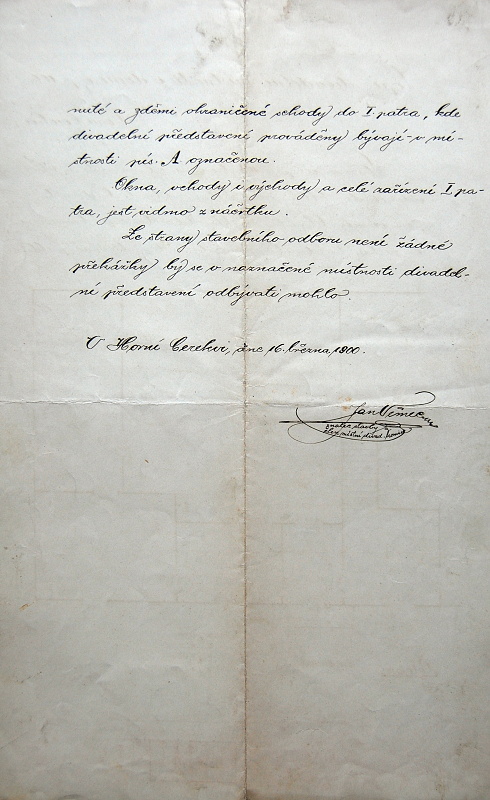 nuté a zděmi ohraničené schody do I. patra, kde
divadelní představení prováděny bývají v mí-
stnosti pís. A označenou.
Okna, vchody i východy a celé zařízení I pa-
tra, jest vidmo z náčrtku.
Ze strany stavebního odboru není žádné
překážky by se v naznačené místnosti divadel-
ní představení odbývati mohlo.
V Horní Cerekvi, dne 16. března, 1900.
Jan Němec
znalec stavby